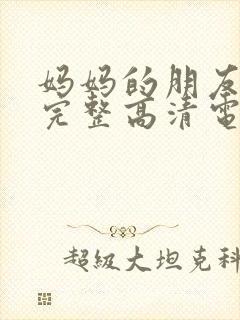 妈妈的朋友
完整高清電
超級大坦克科